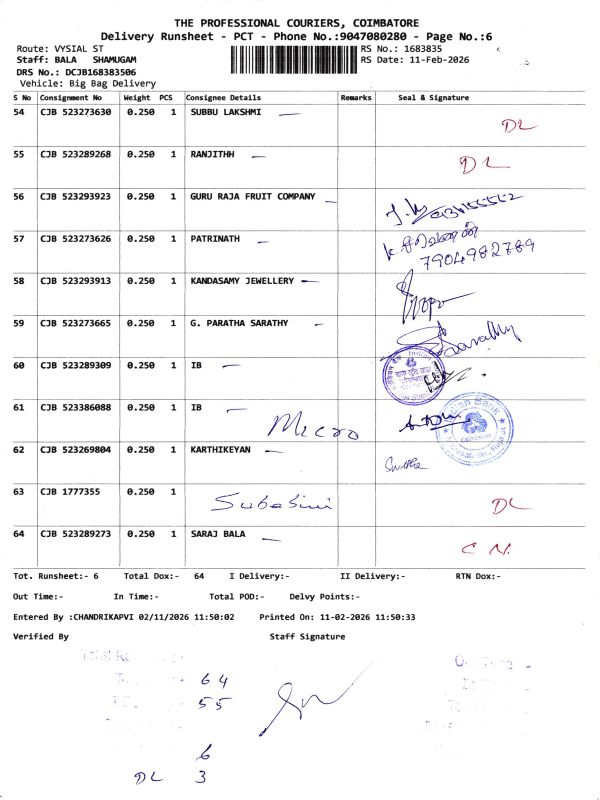 THE PROFESSIONAL COURIERS, COIMBATORE
Delivery Runsheet - PCT - Phone No.:9047080280 - Page No.:6
Route: VYSIAL ST RS No.: 1683835
Staff: BALA SHAMUGAM RS Date: 11-Feb-2026
DRS No.: DCJB168383506
Vehicle: Big Bag Delivery
S No Consignment No Weight PCS Consignee Details Remarks Seal & Signature
54 CJB 523273630 0.250 1 SUBBU LAKSHMI — DL
55 CJB 523289268 0.250 1 RANJITHH — DL
56 CJB 523293923 0.250 1 GURU RAJA FRUIT COMPANY —
57 CJB 523273626 0.250 1 PATRINATH —
7904982789
58 CJB 523293913 0.250 1 KANDASAMY JEWELLERY —
59 CJB 523273665 0.250 1 G. PARATHA SARATHY —
60 CJB 523289309 0.250 1 IB —
61 CJB 523386088 0.250 1 IB — Micro
Indian Bank
62 CJB 523269804 0.250 1 KARTHIKEYAN —
63 CJB 1777355 0.250 1 Subasini DL
64 CJB 523289273 0.250 1 SARAJ BALA — C N.
Tot. Runsheet:- 6 Total Dox:- 64 I Delivery:- II Delivery:- RTN Dox:-
Out Time:- In Time:- Total POD:- Delvy Points:-
Entered By :CHANDRIKAPVI 02/11/2026 11:50:02 Printed On: 11-02-2026 11:50:33
Verified By Staff Signature
64
55
6
DL 3